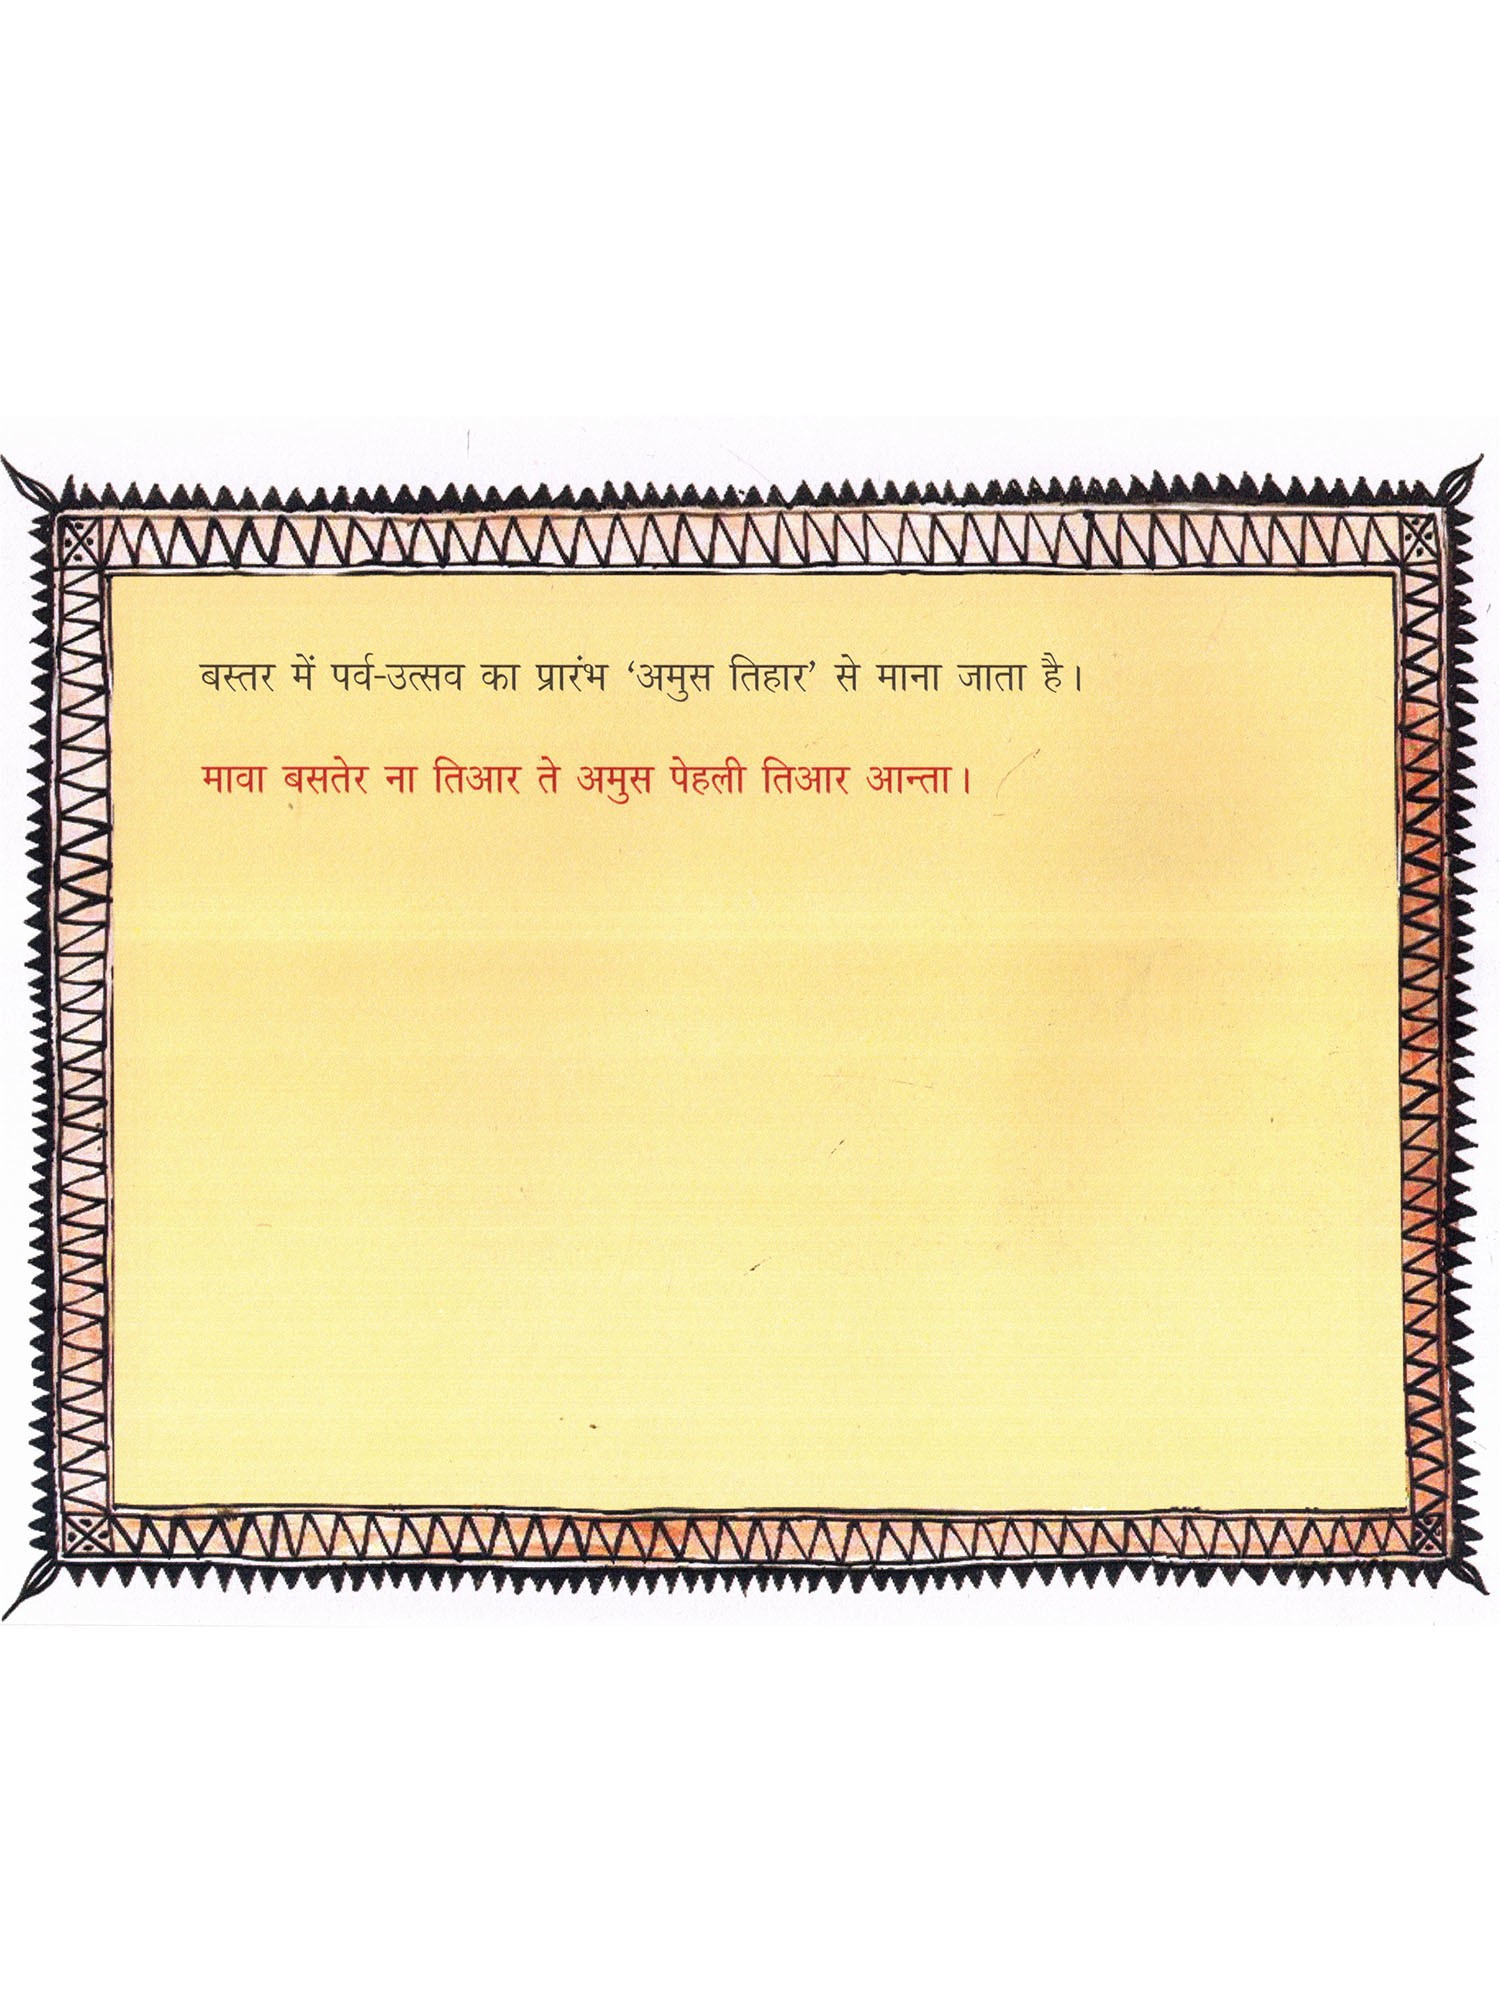 बस्तर में पर्व-उत्सव का प्रारंभ ‘अमुस तिहार’ से माना जाता है।
मावा बसतेर ना तिआर ते अमुस पेहली तिआर आन्ता।